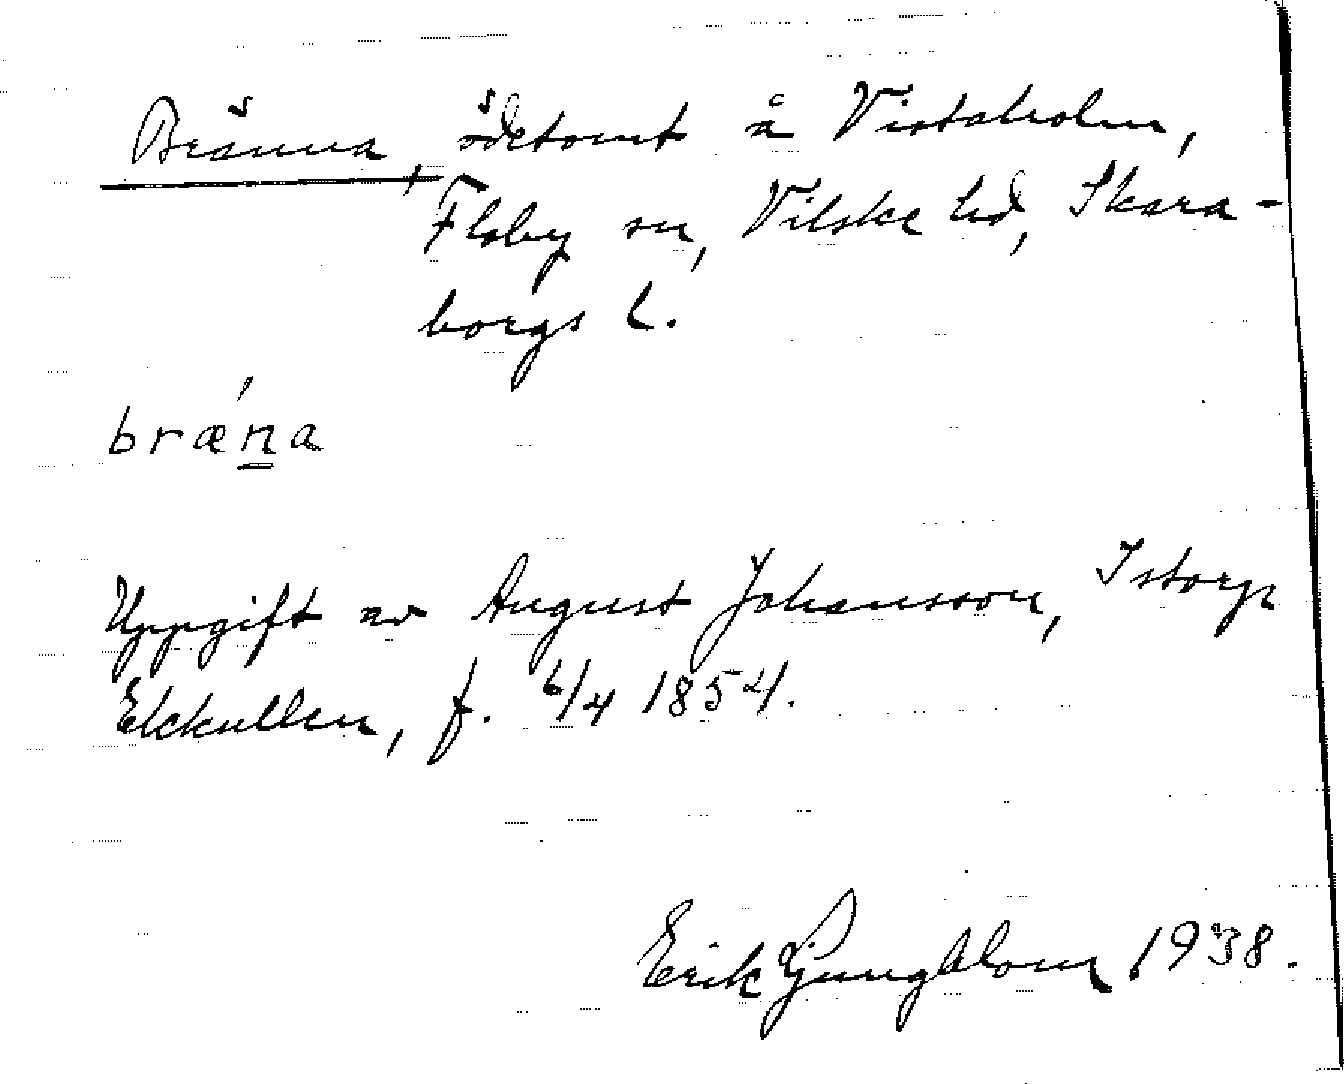 Bränna, ödetomt å Vistaholm,
Floby sn, Vilske hd, Skara-
borgs l.
bræ´n̲a
Uppgift av August Johansson, Istorp
Ekkullen, f. 6/4 1854.
Erik Ljungblom 1938.